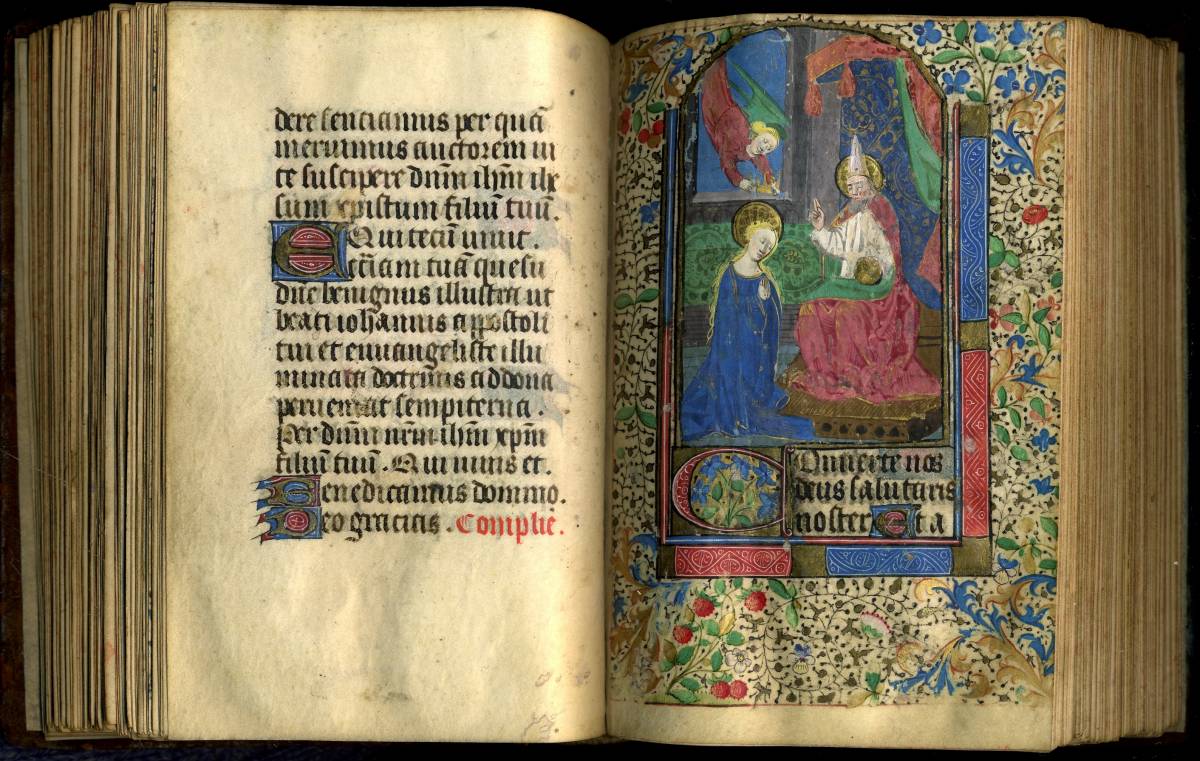 dere senciamus per quā
meruimus auctorem ui
te suscipere dn̄m ih̄m ih̄
sum xpistum filiū tuū.
Qui tecū uiuit.
Ecc̄iam tuā quesū
dn̄e benignus illustra ut
beati iohannis apostoli
tui et euuangeliste illu
minata doctrinis ad dona
perueniat sempiterna.
Per dn̄m nr̄m ih̄m xp̄m
filiū tuū. Qui uiuis et.
Benedicamus domino.
Deo gracias. Complie.
Conuerte nos
deus salutaris
noster Et a